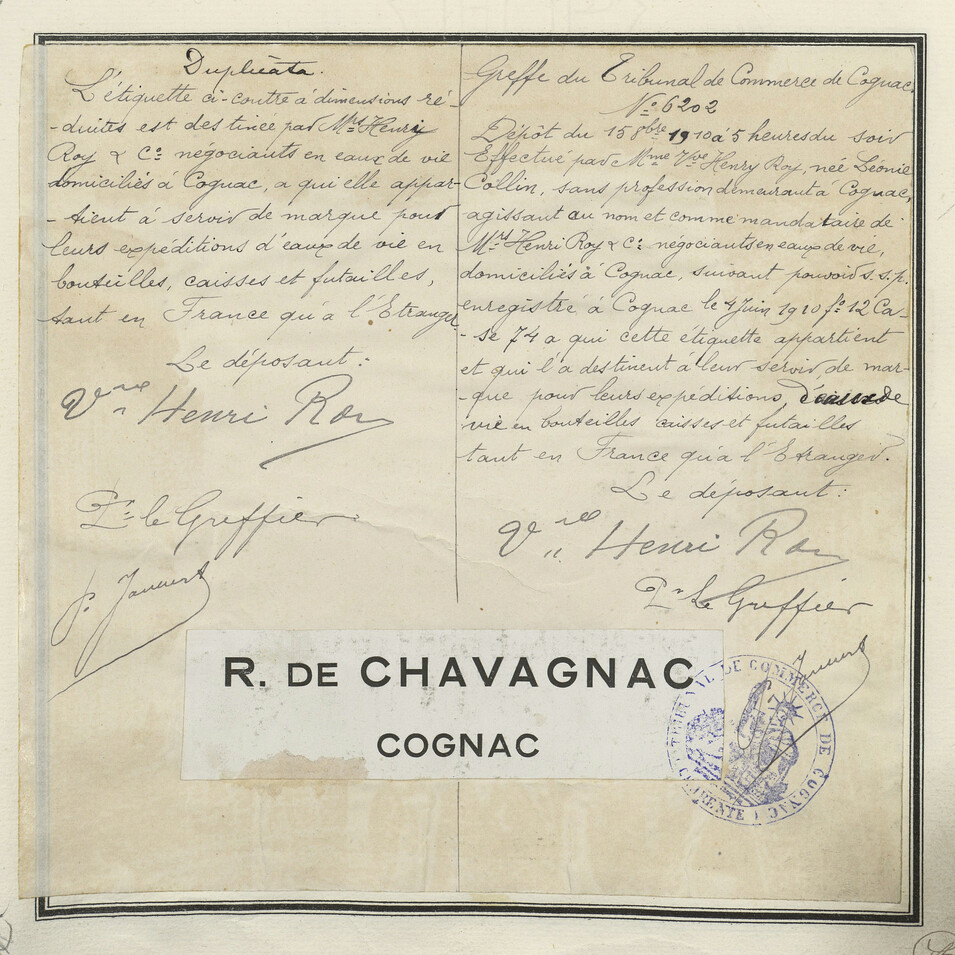 Duplicata.
L'étiquette ci-contre à dimensions ré-
-duites est destinée par Mrs Henry
Roy & Co: négociants en eaux de vie
domiciliés à Cognac, a qui elle appar-
-tient à servir de marque pour
leurs expéditions d'eaux de vie en
bouteilles, caisses et futailles,
tant en France qu'à l'Etranger
Le déposant:
Vve Henri Roy
Pr le Greffier
Greffe du Tribunal de Commerce de Cognac.
No: 6202
Dépôt du 15 8bre 1910 à 5 heures du soir
Effectué par Mme Vve Henry Roy, née Léonie
Collin, sans profession demeurant à Cognac,
agissant au nom et comme mandataire de
Mrs Henri Roy & Co: négociants en eaux de vie,
domiciliés à Cognac, suivant pouvoir s.s.p.
enregistré à Cognac le 4 Juin 1910 fo 12 Ca-
-se 74 a qui cette étiquette appartient
et qui l'a destinent à leur servir de mar-
-que pour leurs expéditions, d'eaux de
vie en bouteilles caisses et futailles
tant en France qu'à l'Etranger.
Le déposant:
Vve Henri Roy
Pr le Greffier
R. DE CHAVAGNAC
COGNAC
TRIBUNAL DE COMMERCE DE COGNAC
(CHARENTE)